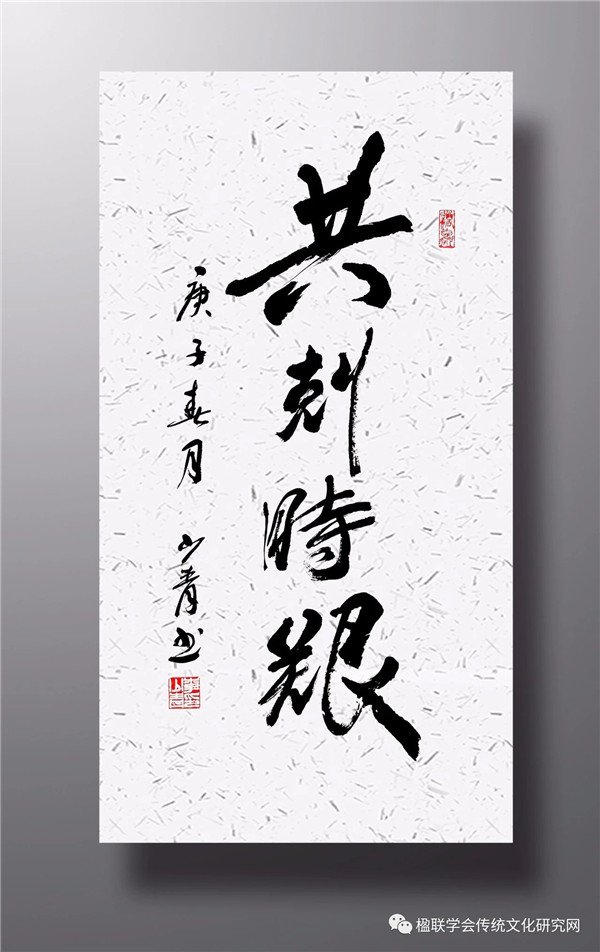 共剋時艱
庚子春月 山青书
楹联学会传统文化研究网